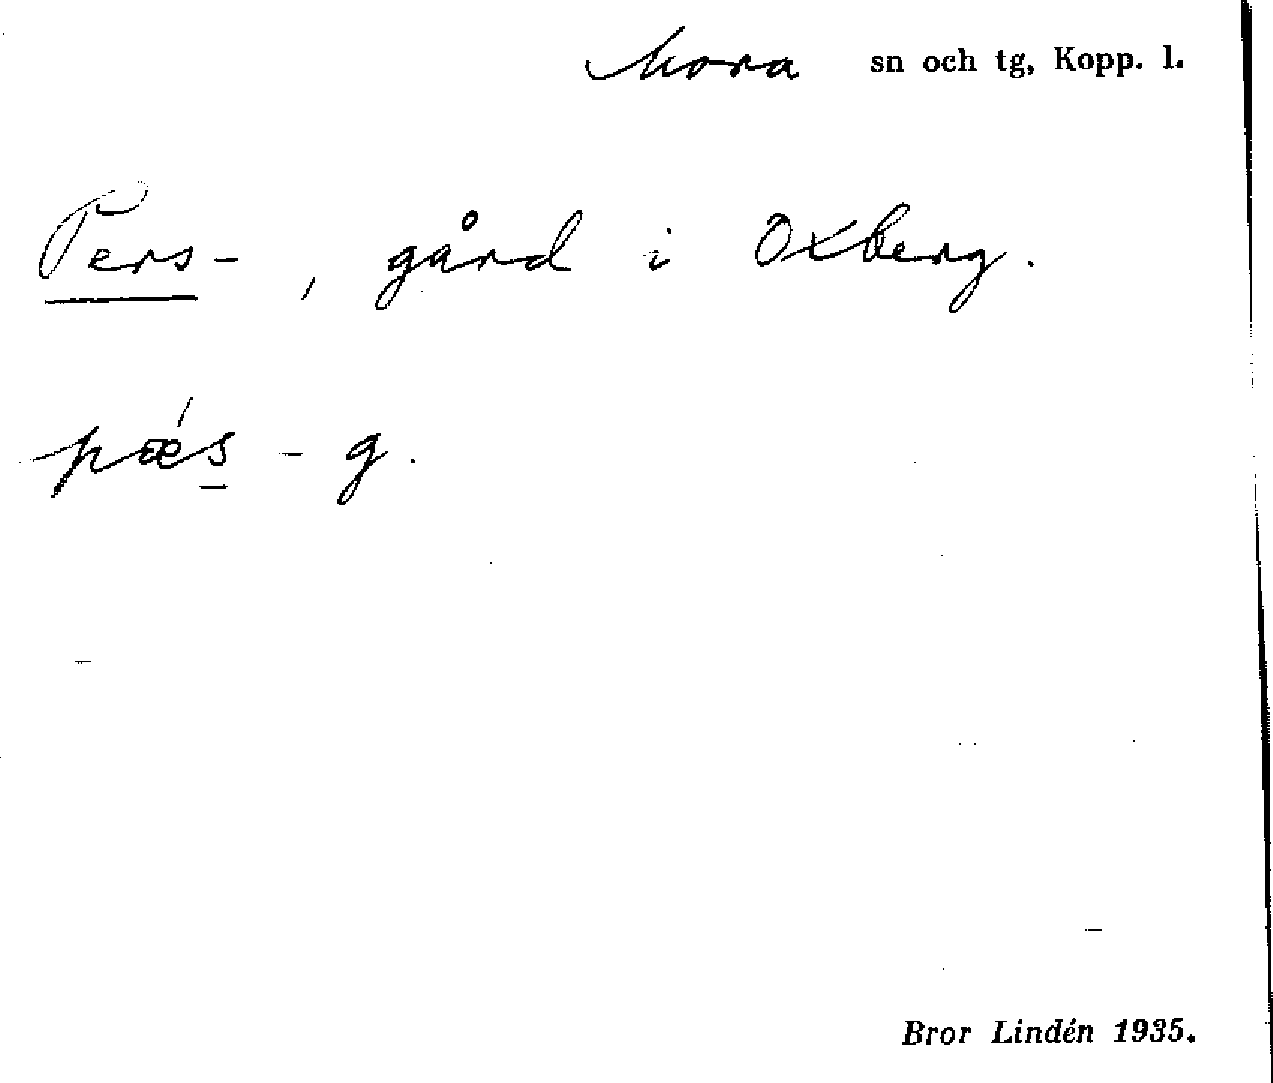 Mora sn och tg, Kopp. l.
Pers-, gård i Oxberg.
pǽs - g.
Bror Lindén 1935.